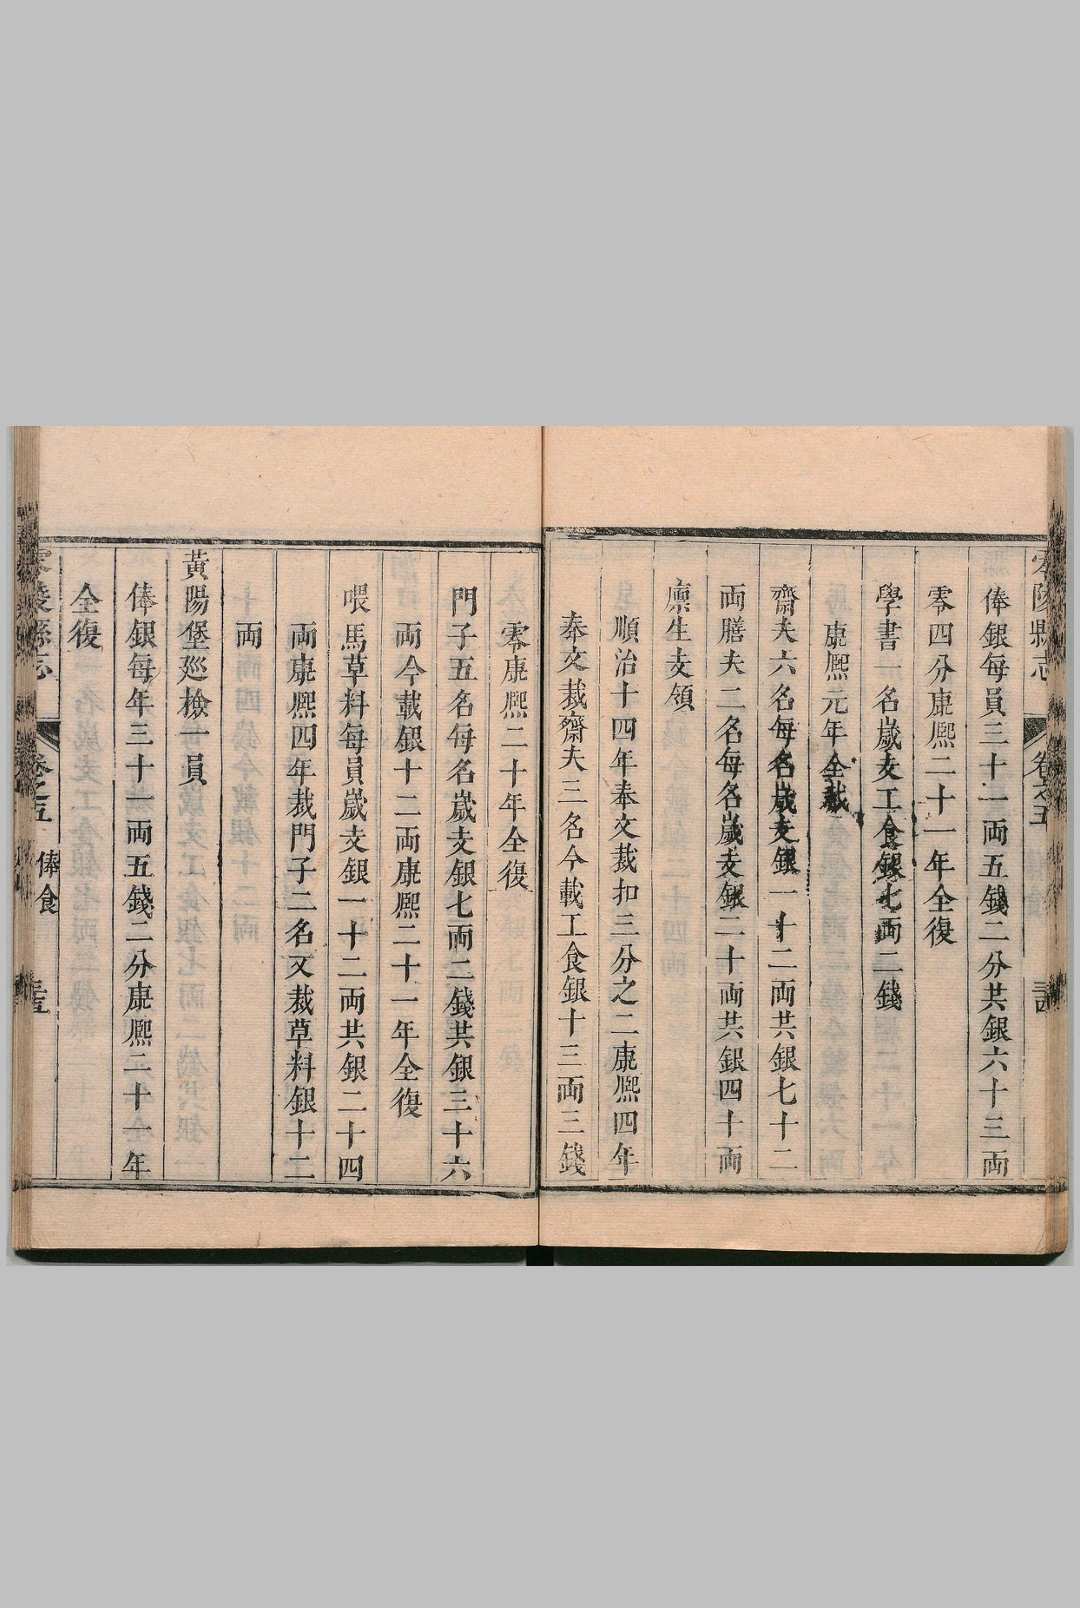 零陵縣志 卷之五
俸銀每員三十一両五錢二分共銀六十三両
零四分康熙二十一年全復
學書一名歲支工食銀七両二錢
康熙元年全裁
齋夫六名每名歲支銀一十二両共銀七十二
両膳夫二名每名歲支銀二十両共銀四十両
廪生支領
順治十四年奉文裁扣三分之二康熙四年
奉文裁齋夫三名今載工食銀十三両三錢
零康熙二十年全復
門子五名每名歲支銀七両二錢共銀三十六
両今載銀十二両康熙二十一年全復
喂馬草料每員歲支銀一十二両共銀二十四
両康熙四年裁門子二名又裁草料銀十二
両
黃陽堡廵檢一員
俸銀每年三十一両五錢二分康熙二十一年
全復
零陵縣志 卷之五 俸食